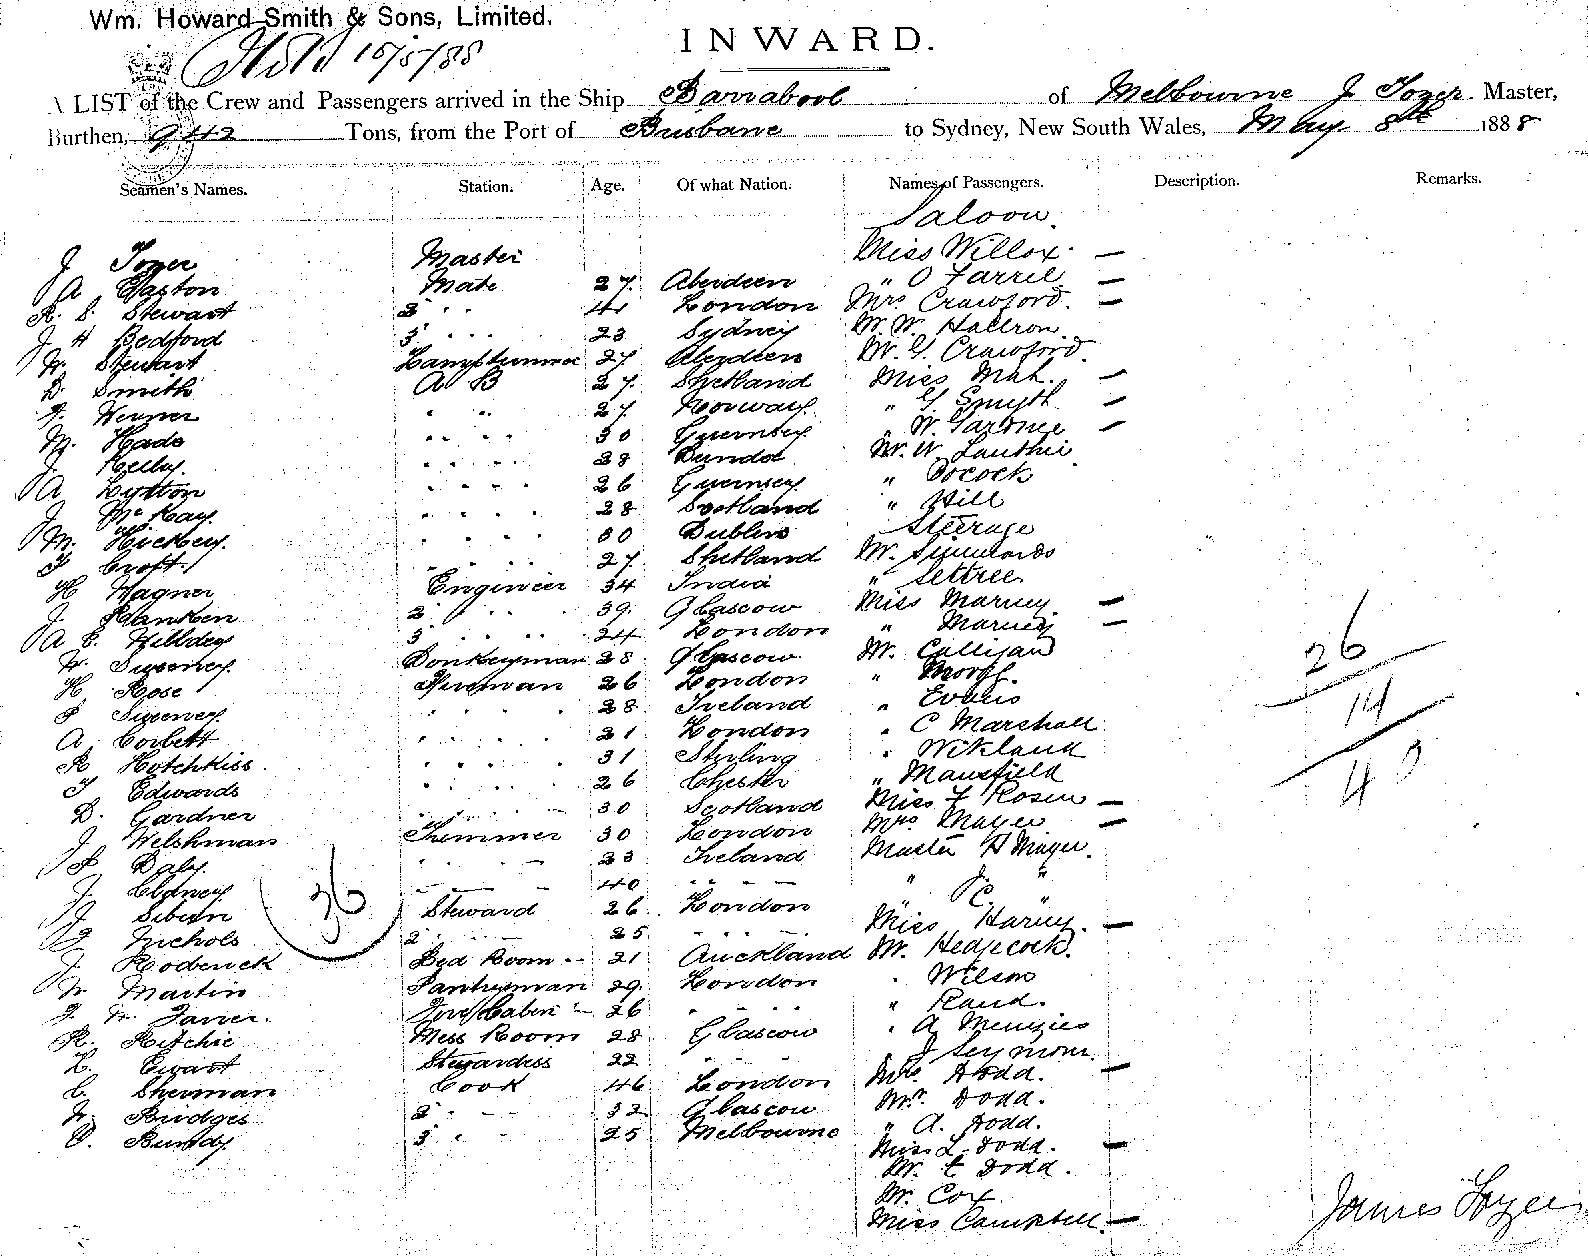 Wm. Howard Smith & Sons, Limited.
10/5/88
INWARD.
A LIST of the Crew and Passengers arrived in the Ship Barrabool of Melbourne J Tozer Master,
Burthen, 942 Tons, from the Port of Brisbane to Sydney, New South Wales, May 8th 1888
Seamen's Names. Station. Age. Of what Nation. Names of Passengers. Description. Remarks.
Saloon.
J Tozer Master Miss Willox —
A Gaston Mate 27 Aberdeen " O Farrel —
R. S. Stewart 2 " " 41 London Mrs Crawford. —
J H Bedford 3 " " 23 Sydney Mr. W. Halloron
W. Stewart Lamptrimmer 27 Aberdeen Mr. G. Crawford.
D Smith A B 27 Shetland Miss Mah. —
Werner " " 27 Norway " G Smyth —
M. Hade " " 30 Guernsey " W. Gardner —
J. Kelly. " " 28 Mr. W.
A Lytton " " 26 Guernsey " Pocock
J. McKay. " " 28 Scotland " Hill
M. Hickey. " " 30 Dublin Steerage
T Croft. " " 27 Shetland Mr. Simmonds
H Wagner Engineer 34 India " Settree
J. Rankin 2 " " 39 Glascow Miss Marney —
A E. Hibbley 3 " " 24 London " Marney —
W. Sweeney. Donkeyman 28 Glascow Mr. Calligan
H Rose Fireman 26 London "
J Sweeney " " 28 Ireland " Evans
A. Corbett " " 21 London " C Marshall
R Hotchkiss " " 31 Stirling " Wikland
T Edwards " " 26 Chester " Mansfield
D. Gardner " " 30 Scotland Miss F Rosen —
J. Welshman Trimmer 30 London Mrs Mayer —
J Daly. " " 23 Ireland Master H Mayer.
J. " " 40 " " " "
J Steward 26 London Miss Harvey. —
J Nichols 2 " 25 " Mr. Hedgecock.
J. Roderick Bed Room " 21 Auckland " Wilson
W. Martin Pantryman 29 London " Rand.
J. W. Fore Cabin " 26 " " A Menzies
R. Ritchie Mess Room 28 Glascow J Seymour.
L. Ewart Stewardess 22 " Mrs Dodd. —
C Sherman Cook 46 London Mr. Dodd.
W. Bridges 2 " 32 Glascow " A. Dodd.
O. Bundy 3 " 25 Melbourne Miss L. Dodd. —
Mr. E Dodd.
Mr. Cox
Miss Campbell —
36
26
14
40
James Tozer